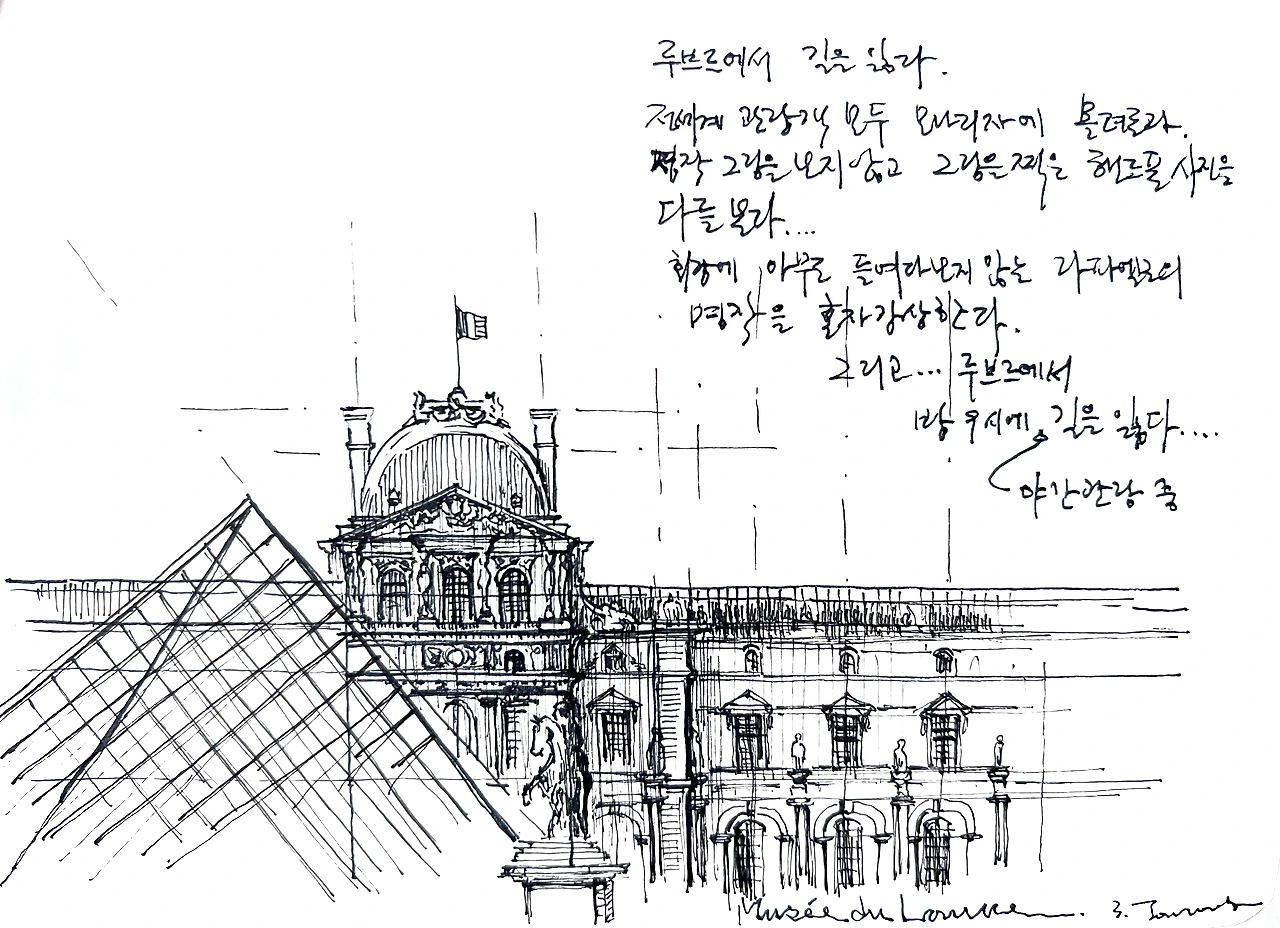 루브르에서 길을 잃다.
전세계 관광객 모두 모나리자에 몰려들다.
명작 그림을 보지 않고 그림을 찍은 핸드폴 사진을
다들 본다....
회랑에 아무도 들여다보지 않는 라파엘로의
명작을 혼자감상한다.
그리고... 루브르에서
밤 9시에 길을 잃다....
야간관광 중
Musée du Louvre.